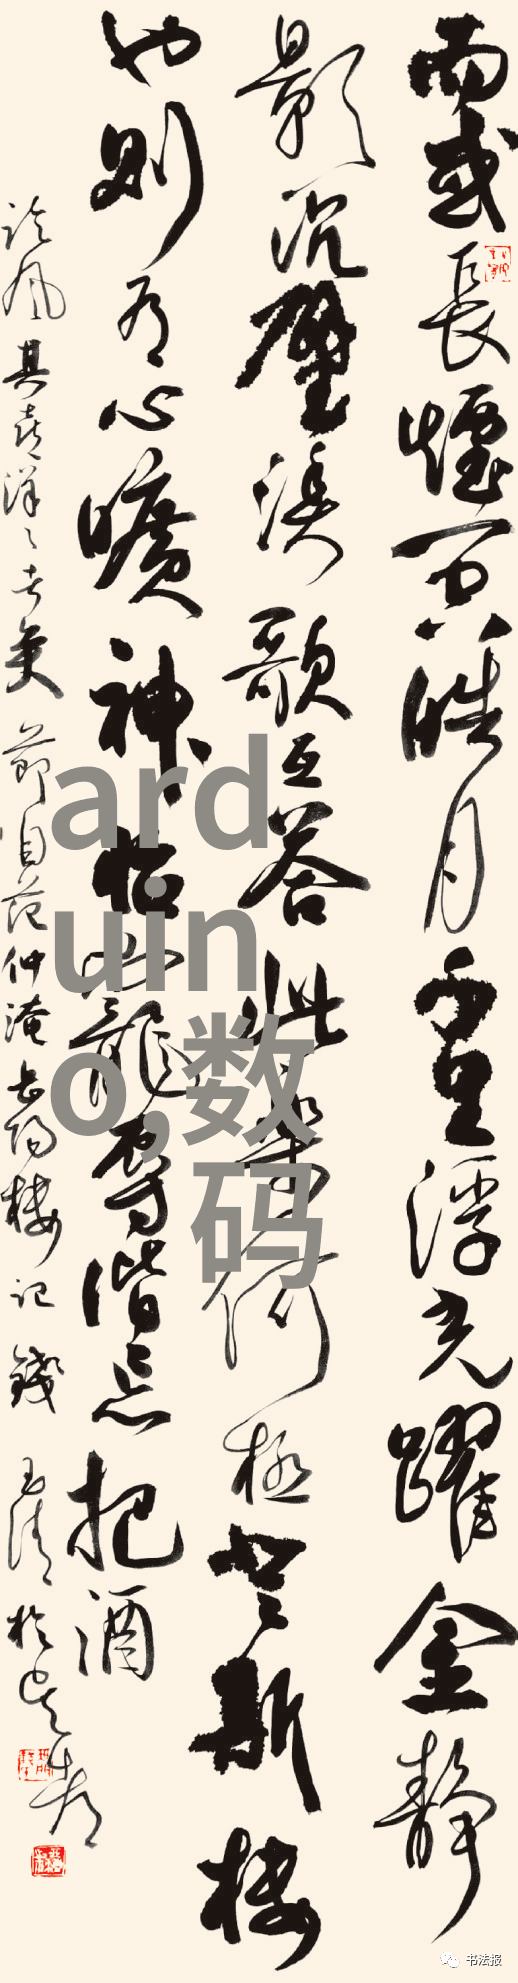 而或長煙一空皓月千里浮光躍金靜
影沉璧漁歌互答此樂何極登斯樓
也則有心曠神怡寵辱偕忘把酒
臨風其喜洋〻者矣 節自范仲淹岳陽樓記 錢玉清於
ard
uin
o,数
码
书法报